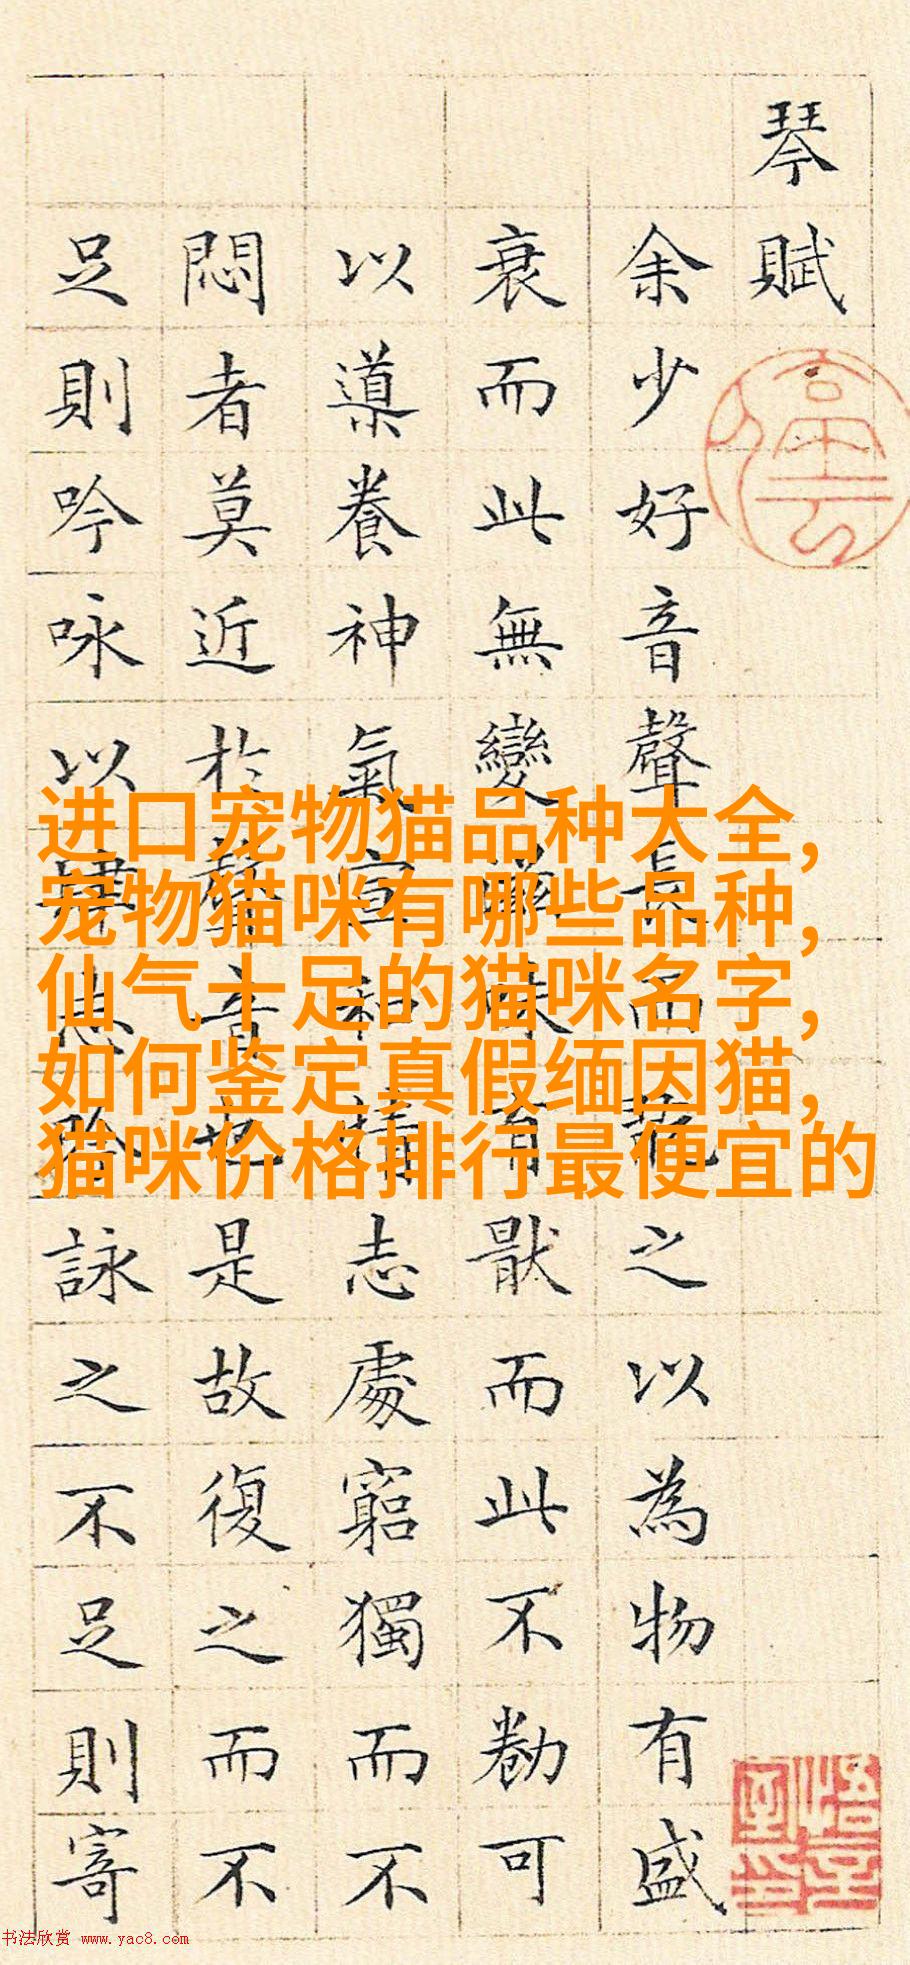 琴賦
余少好音聲長而翫之以為物有盛
衰而此無變滋味有猒而此不勌可
以導養神氣宣和情志處窮獨而不
悶者莫近於聲音也是故復之而不
足則吟咏以肆志吟詠之不足則寄
进口宠物猫品种大全,
宠物猫咪有哪些品种,
仙气十足的猫咪名字,
如何鉴定真假缅因猫,
猫咪价格排行最便宜的
书法欣赏 www.yac8.com